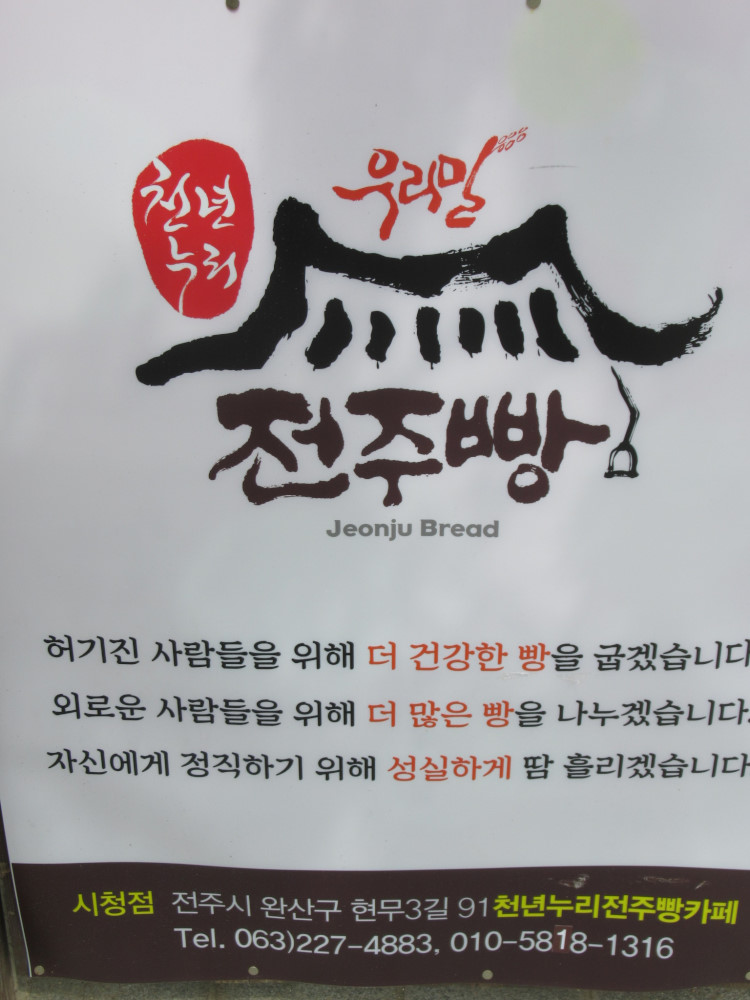 천년
누리
우리밀
전주빵
Jeonju Bread
허기진 사람들을 위해 더 건강한 빵을 굽겠습니다
외로운 사람들을 위해 더 많은 빵을 나누겠습니다.
자신에게 정직하기 위해 성실하게 땀 흘리겠습니다
시청점 전주시 완산구 현무3길 91 천년누리전주빵카페
Tel. 063)227-4883, 010-5818-1316